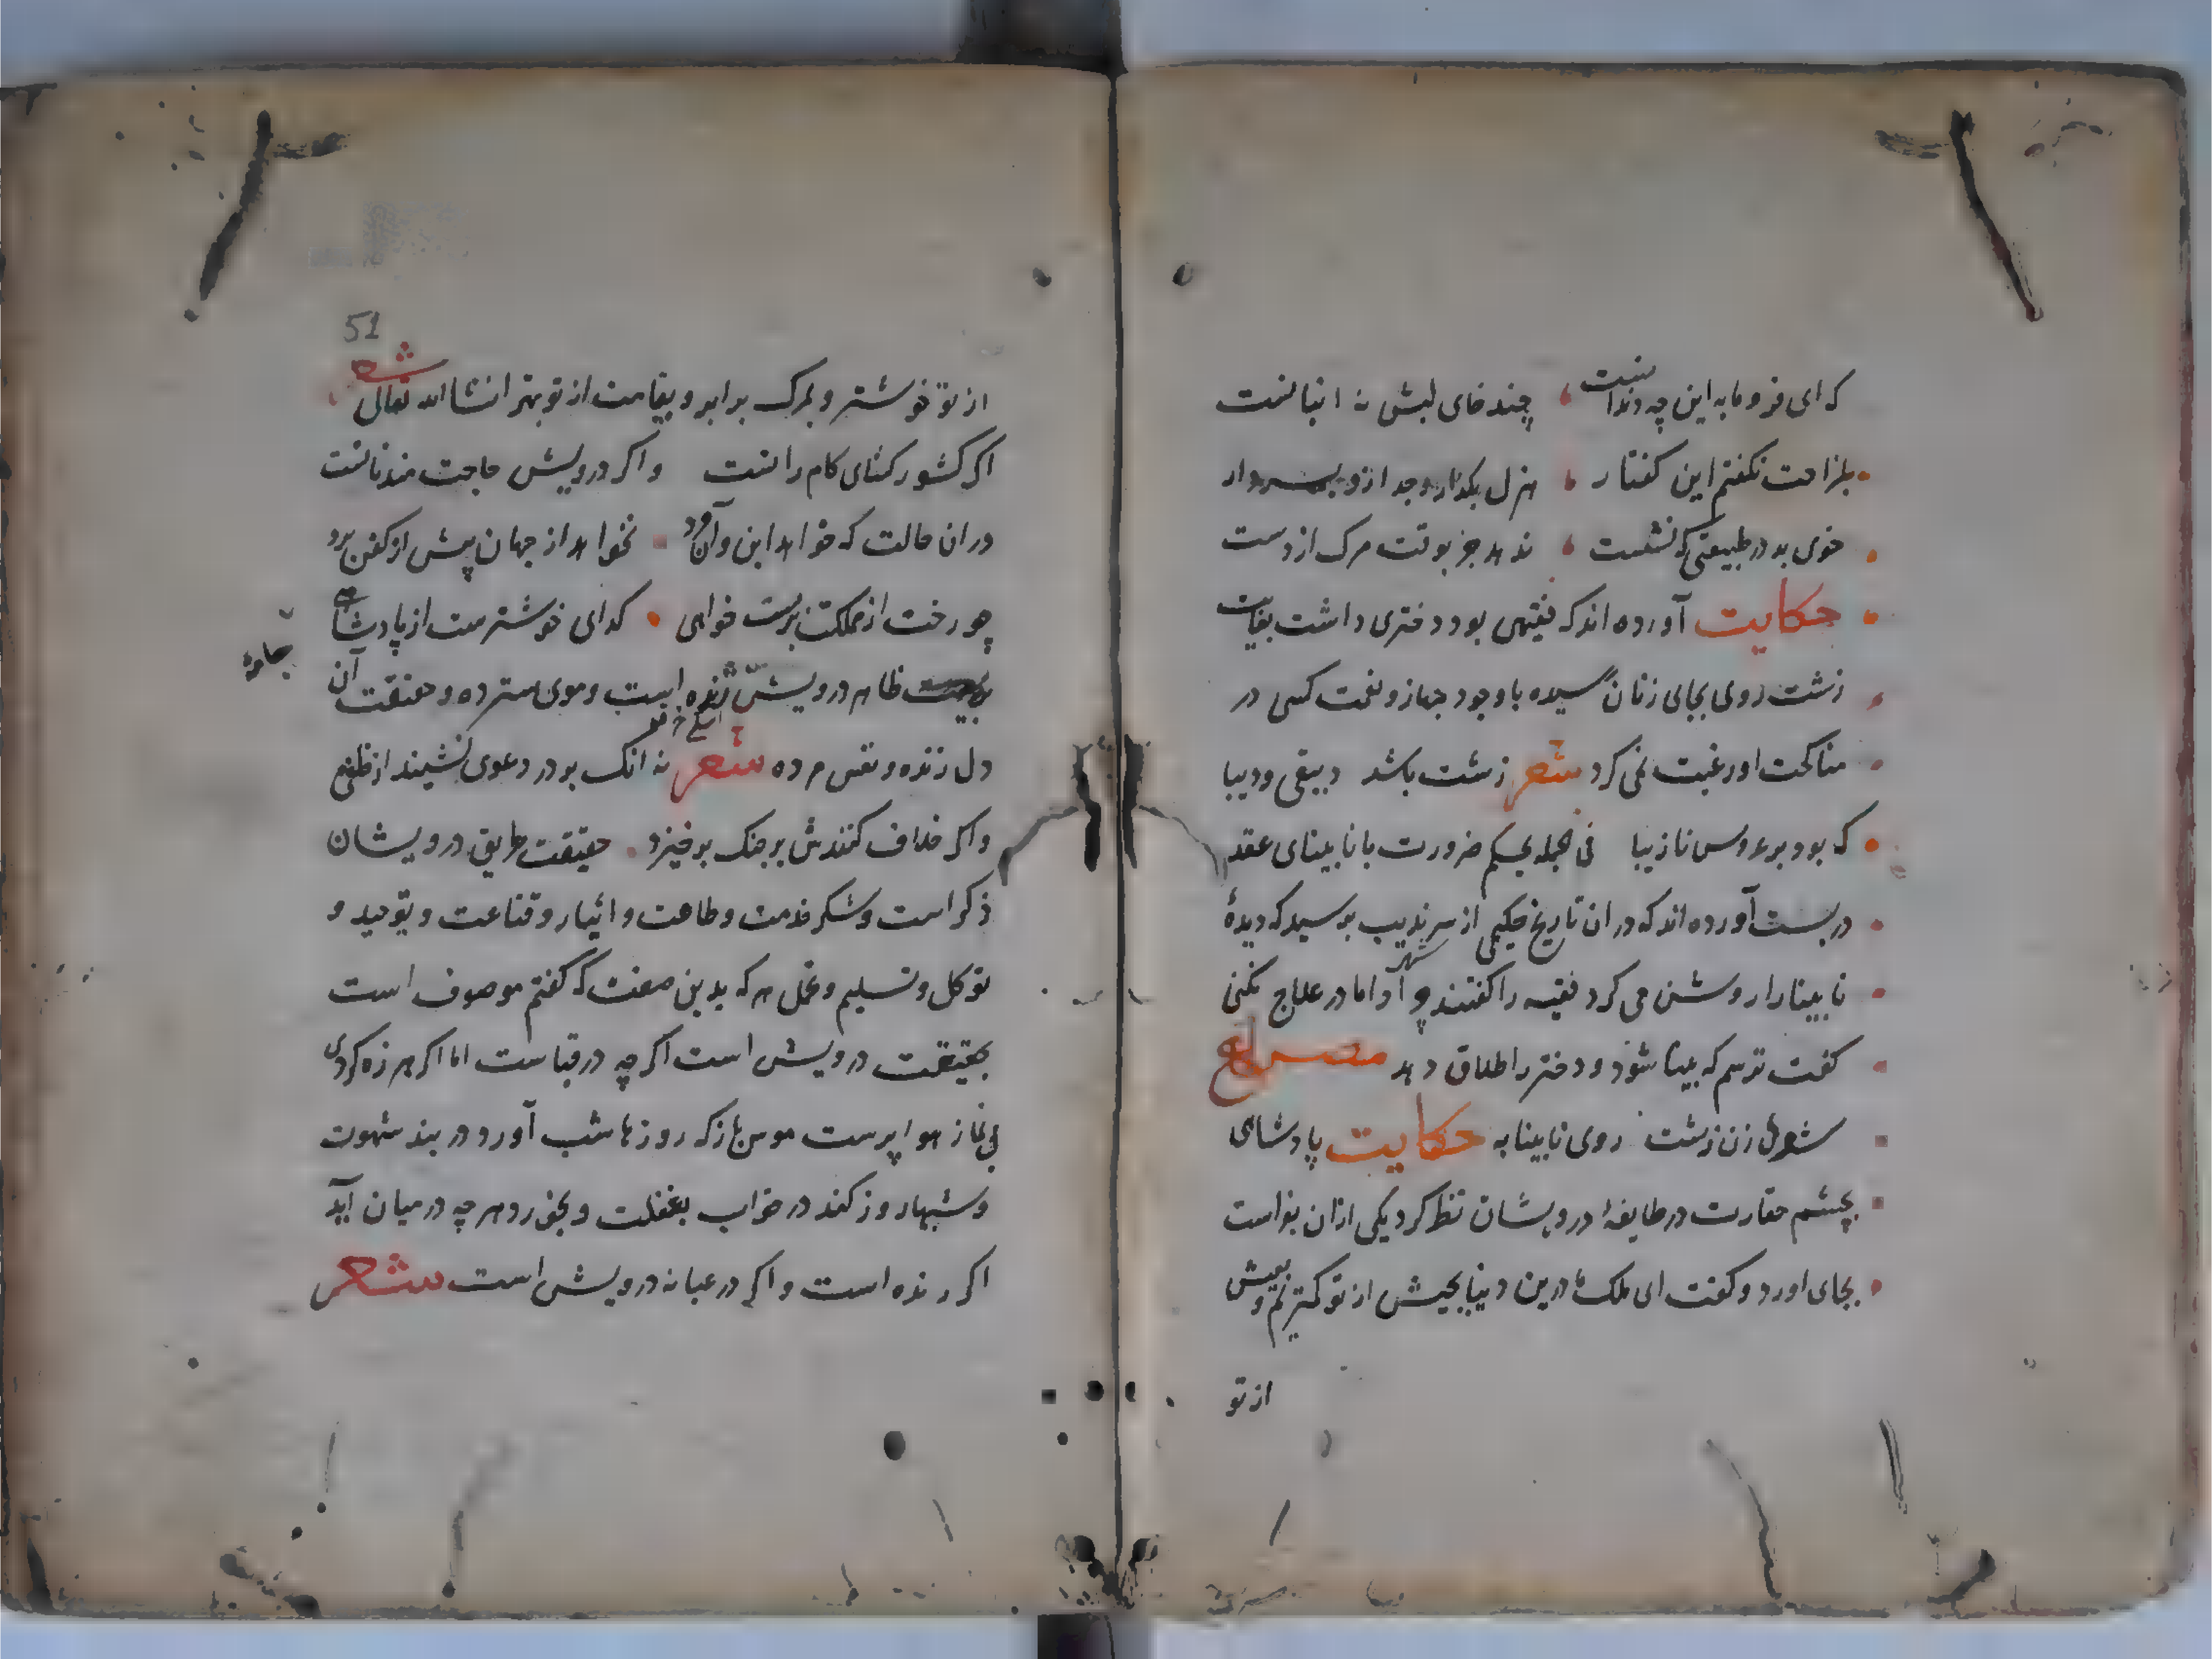 که ای فرومایه این چه دندانست چند خای لبش نه انبانست
بمزاحت نکفتم این کفتار هزل بکذار و جد ازو بردار
خوی بد در طبیعتی که نشست ندهد جز بوقت مرک از دست
حکایت آورده اند که فقیهی بود دختری داشت بغایت
زشت روی بجای زنان رسیده با وجود جهاز و نعمت کسی در
مناکحت او رغبت نمی کرد شعر زشت باشد دبیقی و دیبا
که بود بر عروس نازیبا فی الجمله بحکم ضرورت با نابینای عقد
در بست آورده اند که در ان تاریخ حکیمی از سرندیب برسید که دیدهٔ
نابینارا روشن می کرد فقیه را کفتند چرا داماد را علاج نکنی
کفت ترسم که بینا شود و دختر را طلاق دهد مصراع
شوهر زن زشت روی نابینا به حکایت پادشاهی
بچشم حقارت در طایفهٔ درویشان نظر کرد یکی ازان بفراست
بجای اورد و کفت ای ملک ما درین دنیا بجیش از تو کمتریم و بعیش
از تو
51
از تو خوشتر و بمرک برابر و بقیامت از تو بهتر انشاالله تعالی شعر
اکر کشور کشای کامرانست و اکر درویش حاجتمند نانست
در ان حالت که خواهد این و آن مرد نخواهد از جهان پیش از کفن برد
چو رخت از مملکت بربست خواهی کدای خوشترست از پادشاهی
ظاهر درویش ژنده است و موی سترده و حقیقت آن
جامهٔ
دل زنده و نفس مرده شعر نه انک بر در دعوی نشیند از خلقی
و اکر خلاف کنندش بجنک برخیزد حقیقت طریق درویشان
ذکر است و شکر خدمت و طاعت و ایثار و قناعت و توحید و
توکل و تسلیم و تحمل هر که بدین صفت که کفتم موصوف است
بحقیقت درویش است اکر چه در قباست اما اکر هرزه کردی
بی نماز هوا پرست هوس باز که روزها شب آورد در بند شهوت
و شبها روز کند در خواب بغفلت و بخورد هر چه در میان آید
اکر رنده است و اکر در عبا نه درویش است شعر